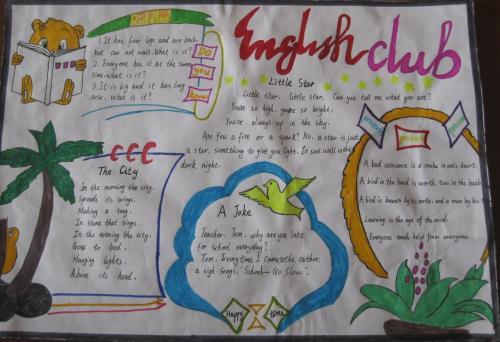 English club
1. It has four legs and are back
but can not walk. What is it?
2. Everyone has it at the same
time. what is it?
3. It is big and it has long
nose. What is it?
Do
you
know
Little Star
Little star, little star, Can you tell me what you are?
You're so high, you're so bright.
You're always up in the sky.
Are You a fire or a spark? No. a star is just
a star. something to give you light. To see well in the
dark night.
The City
In the morning the city.
Spreads its wings.
Making a song.
In stone that sings.
In the evening the city.
Goes to bed.
Hanging lights.
Above its head.
A Joke
Teacher: Tom. why are you late
for school everyday?
Tom: Every time I come to the
a sign songs: "School— Go Slow".
Happy
time
A bad conscience is a snake in one's heart.
A bird in the hand is worth two in the bush
A bird is known by its note, and a man by his
Learning is the eye of the mind.
Everyone needs help from everyone.